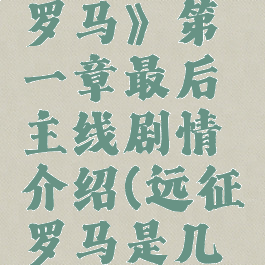 罗马》第
一章最后
主线剧情
介绍(远征
罗马是几